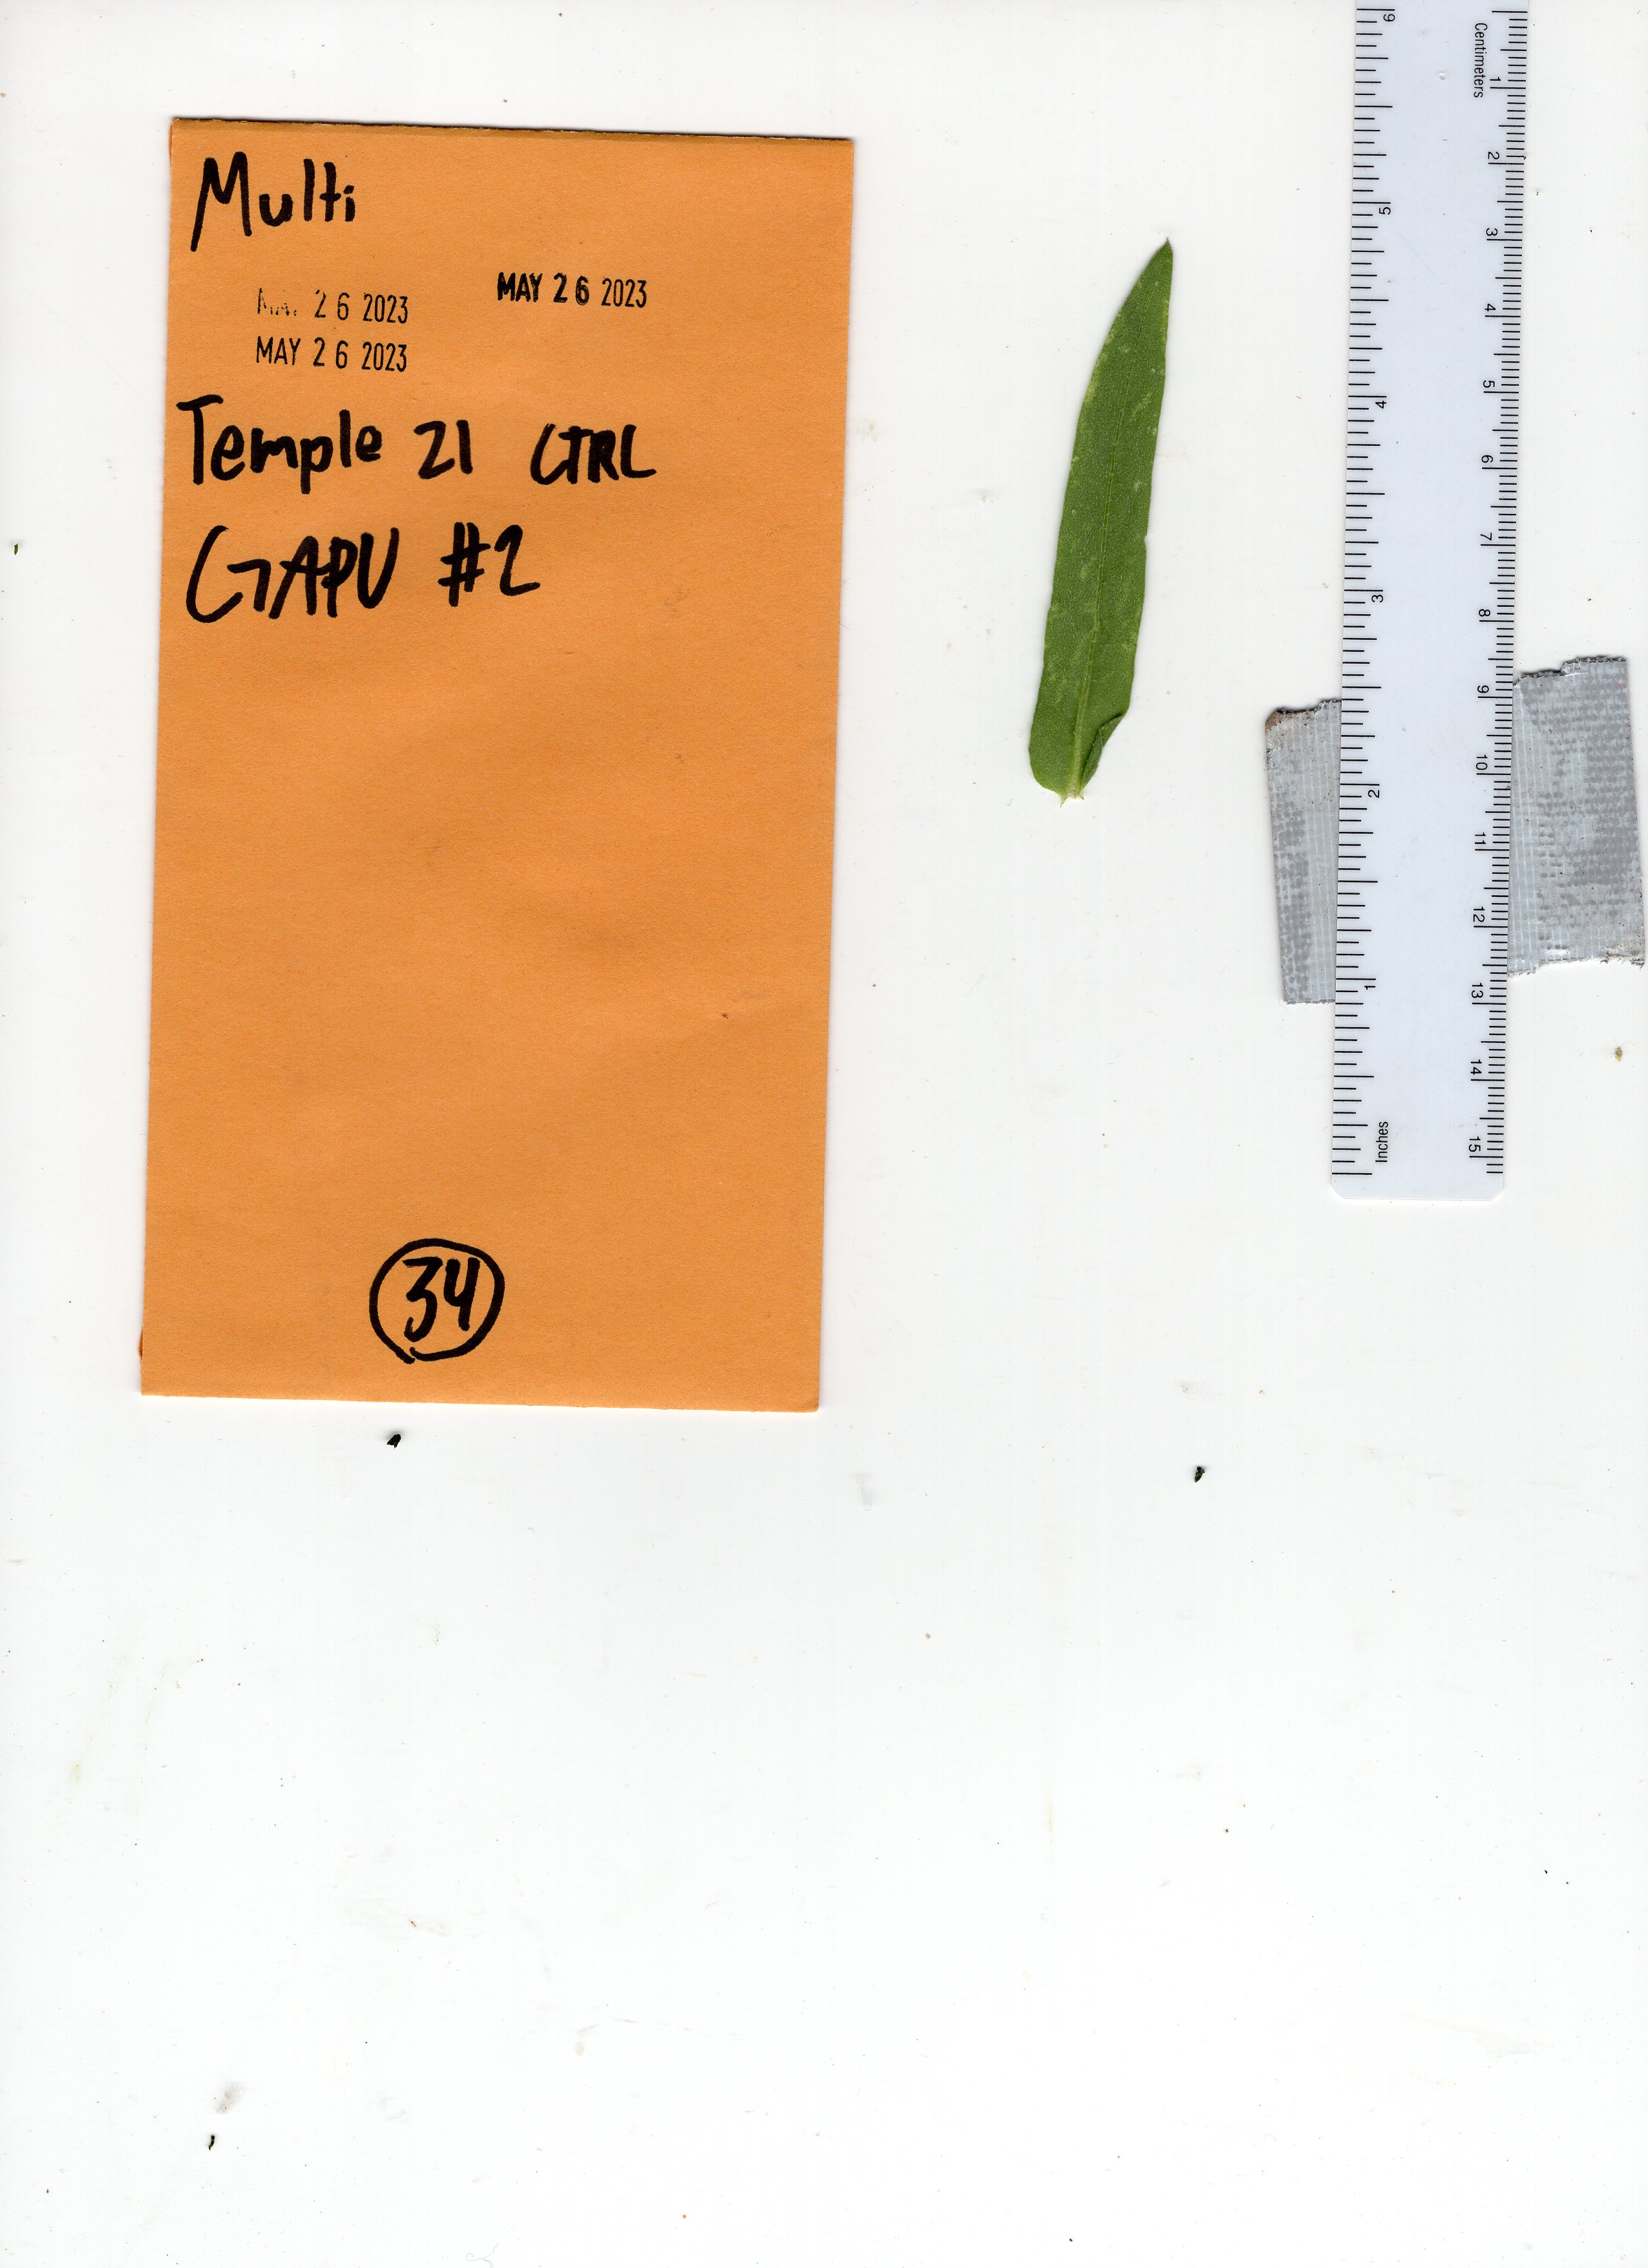 Multi
26 2023
MAY 26 2023
MAY 26 2023
Temple 21 CTRL
GAPU #2
34
Centimeters
1
2
3
4
5
6
7
8
9
10
11
12
13
14
15
6
5
4
3
2
1
Inches